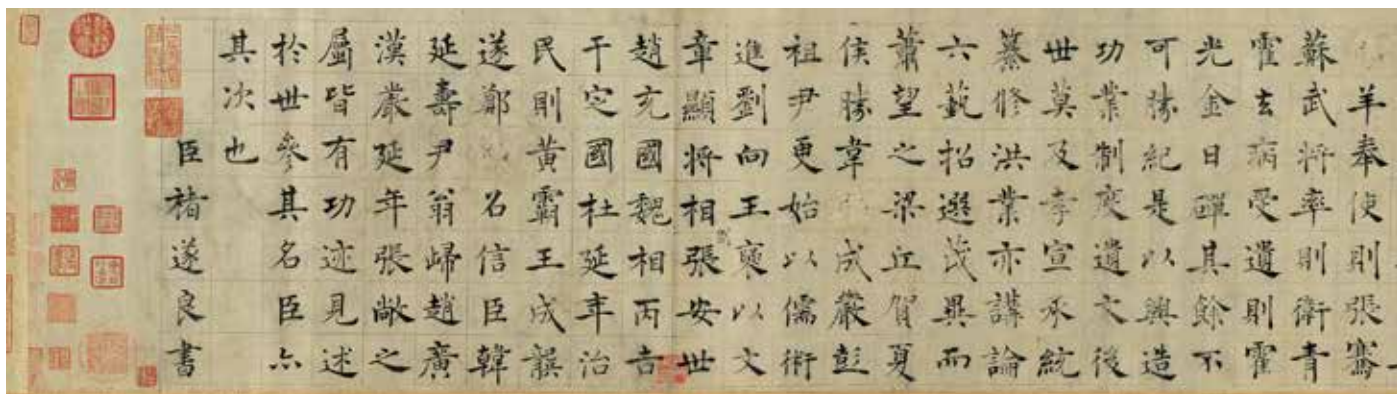 羊奉使則張騫
蘇武將率則衛青
霍去病受遺則霍
光金日磾其餘不
可勝紀是以興造
功業制度遺文後
世莫及孝宣承統
纂修洪業亦講論
六藝招選茂異而
蕭望之梁丘賀夏
侯勝韋成嚴彭
祖尹更始以儒術
進劉向王襃以文
章顯將相張安世
趙充國魏相丙吉
于定國杜延年治
民則黃霸王成龔
遂鄭召信臣韓
延壽尹翁歸趙廣
漢嚴延年張敞之
屬皆有功迹見述
於世參其名臣亦
其次也
臣褚遂良書